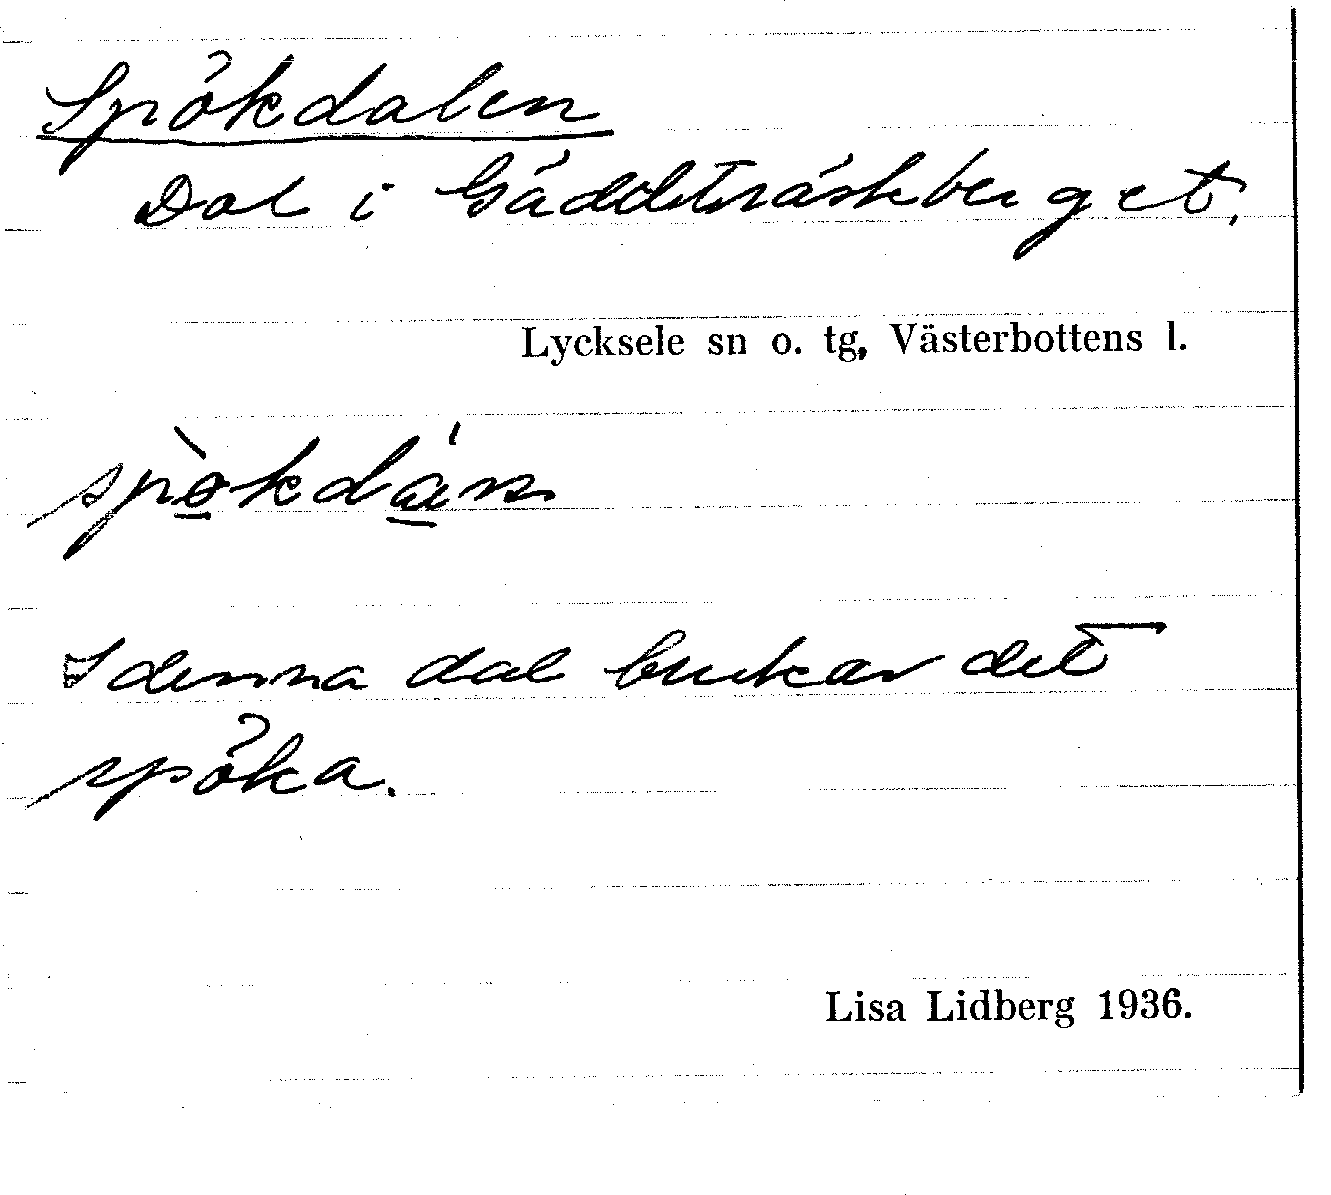 Spökdalen
Dal i Gäddträskberget.
Lycksele sn o. tg, Västerbottens l.
I denna dal brukar det
spöka.
Lisa Lidberg 1936.